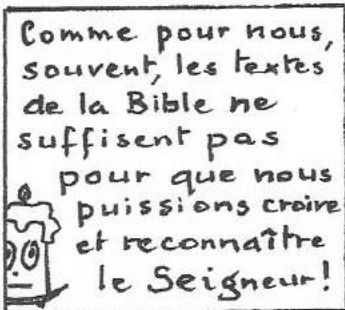 Comme pour nous,
souvent, les textes
de la Bible ne
suffisent pas
pour que nous
puissions croire
et reconnaître
le Seigneur!